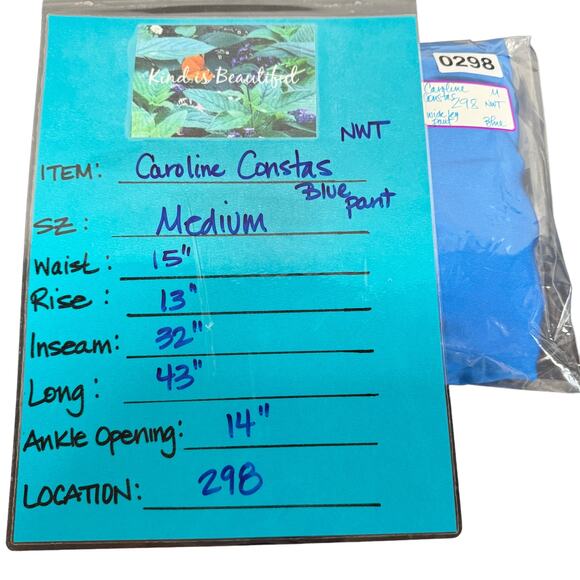 Kind is Beautiful
NWT
ITEM: Caroline Constas
Blue pant
SZ: Medium
Waist: 15"
Rise: 13"
Inseam: 32"
Long: 43"
Ankle Opening: 14"
LOCATION: 298
0298
Caroline M
Constas 298 NWT
wide leg
pant Blue